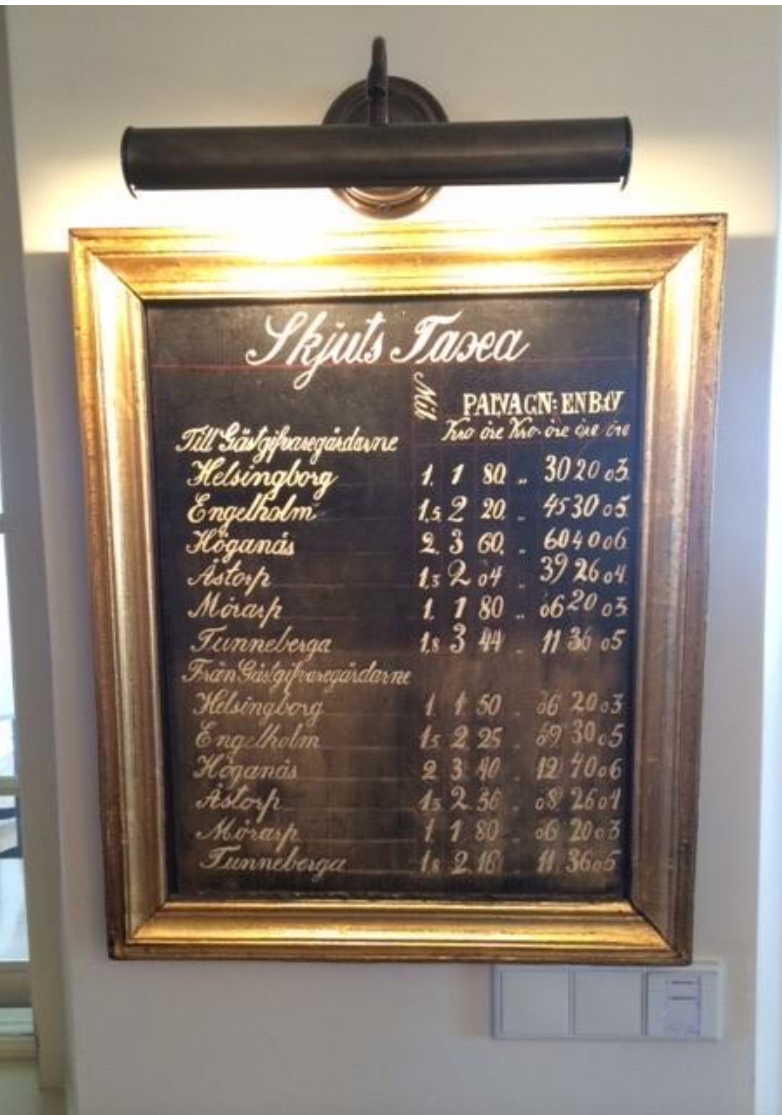 Skjuts Taxa
Mil PAR VAGN: ENBET
Till Gästgifvaregårdarne Kro öre Kro öre öre öre
Helsingborg 1. 1 80 „ 30 20 03
Engelholm 1,5 2 20 „ 45 30 05
Höganäs 2. 3 60 „ 60 40 06
Åstorp 1,3 2 04 „ 39 26 04
Mörarp 1. 1 80 „ 06 20 03
Tunneberga 1,8 3 44 „ 11 36 05
Från Gästgifvaregårdarne
Helsingborg 1 1 50 „ 06 20 03
Engelholm 1,5 2 25 „ 09 30 05
Höganäs 2 3 40 „ 12 40 06
Åstorp 1,3 2 36 „ 08 26 04
Mörarp 1 1 80 „ 06 20 03
Tunneberga 1,8 2 16 „ 11 36 05